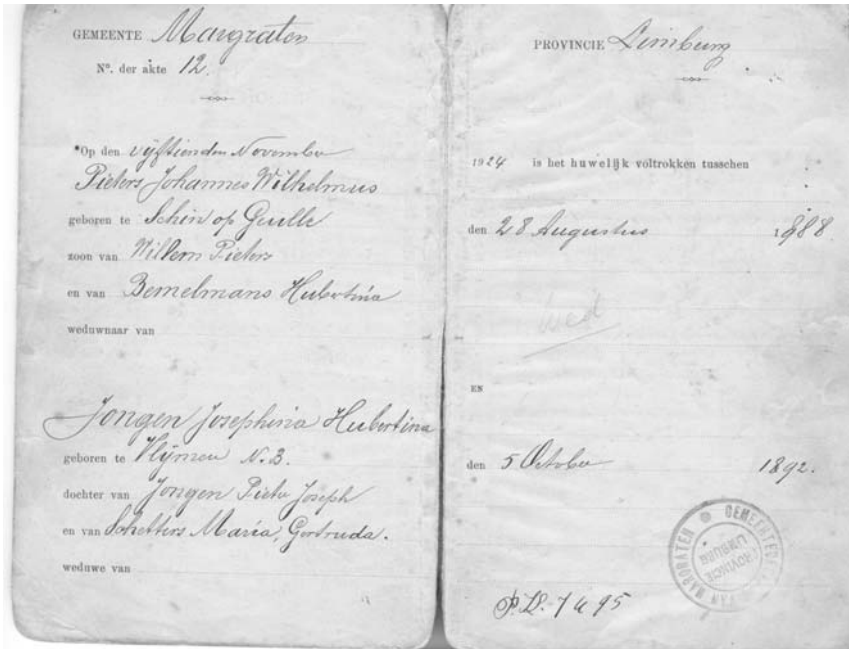 GEMEENTE Margraten
Nº. der akte 12.
*Op den vijftienden November
Pieters Johannes Wilhelmus
geboren te Schin op Geulle
zoon van Willem Pieters
en van Bemelmans Hubertina
weduwnaar van
Jongen Josephina Hubertina
geboren te Vlijmen N.B.
dochter van Jongen Pieter Joseph
en van Schetters Maria, Gertruda.
weduwe van
PROVINCIE Limburg
1924 is het huwelijk voltrokken tusschen
den 28 Augustus 1888
wed
EN
den 5 October 1892.
GEMEENTEBESTUUR VAN MARGRATEN
PROVINCIE
LIMBURG